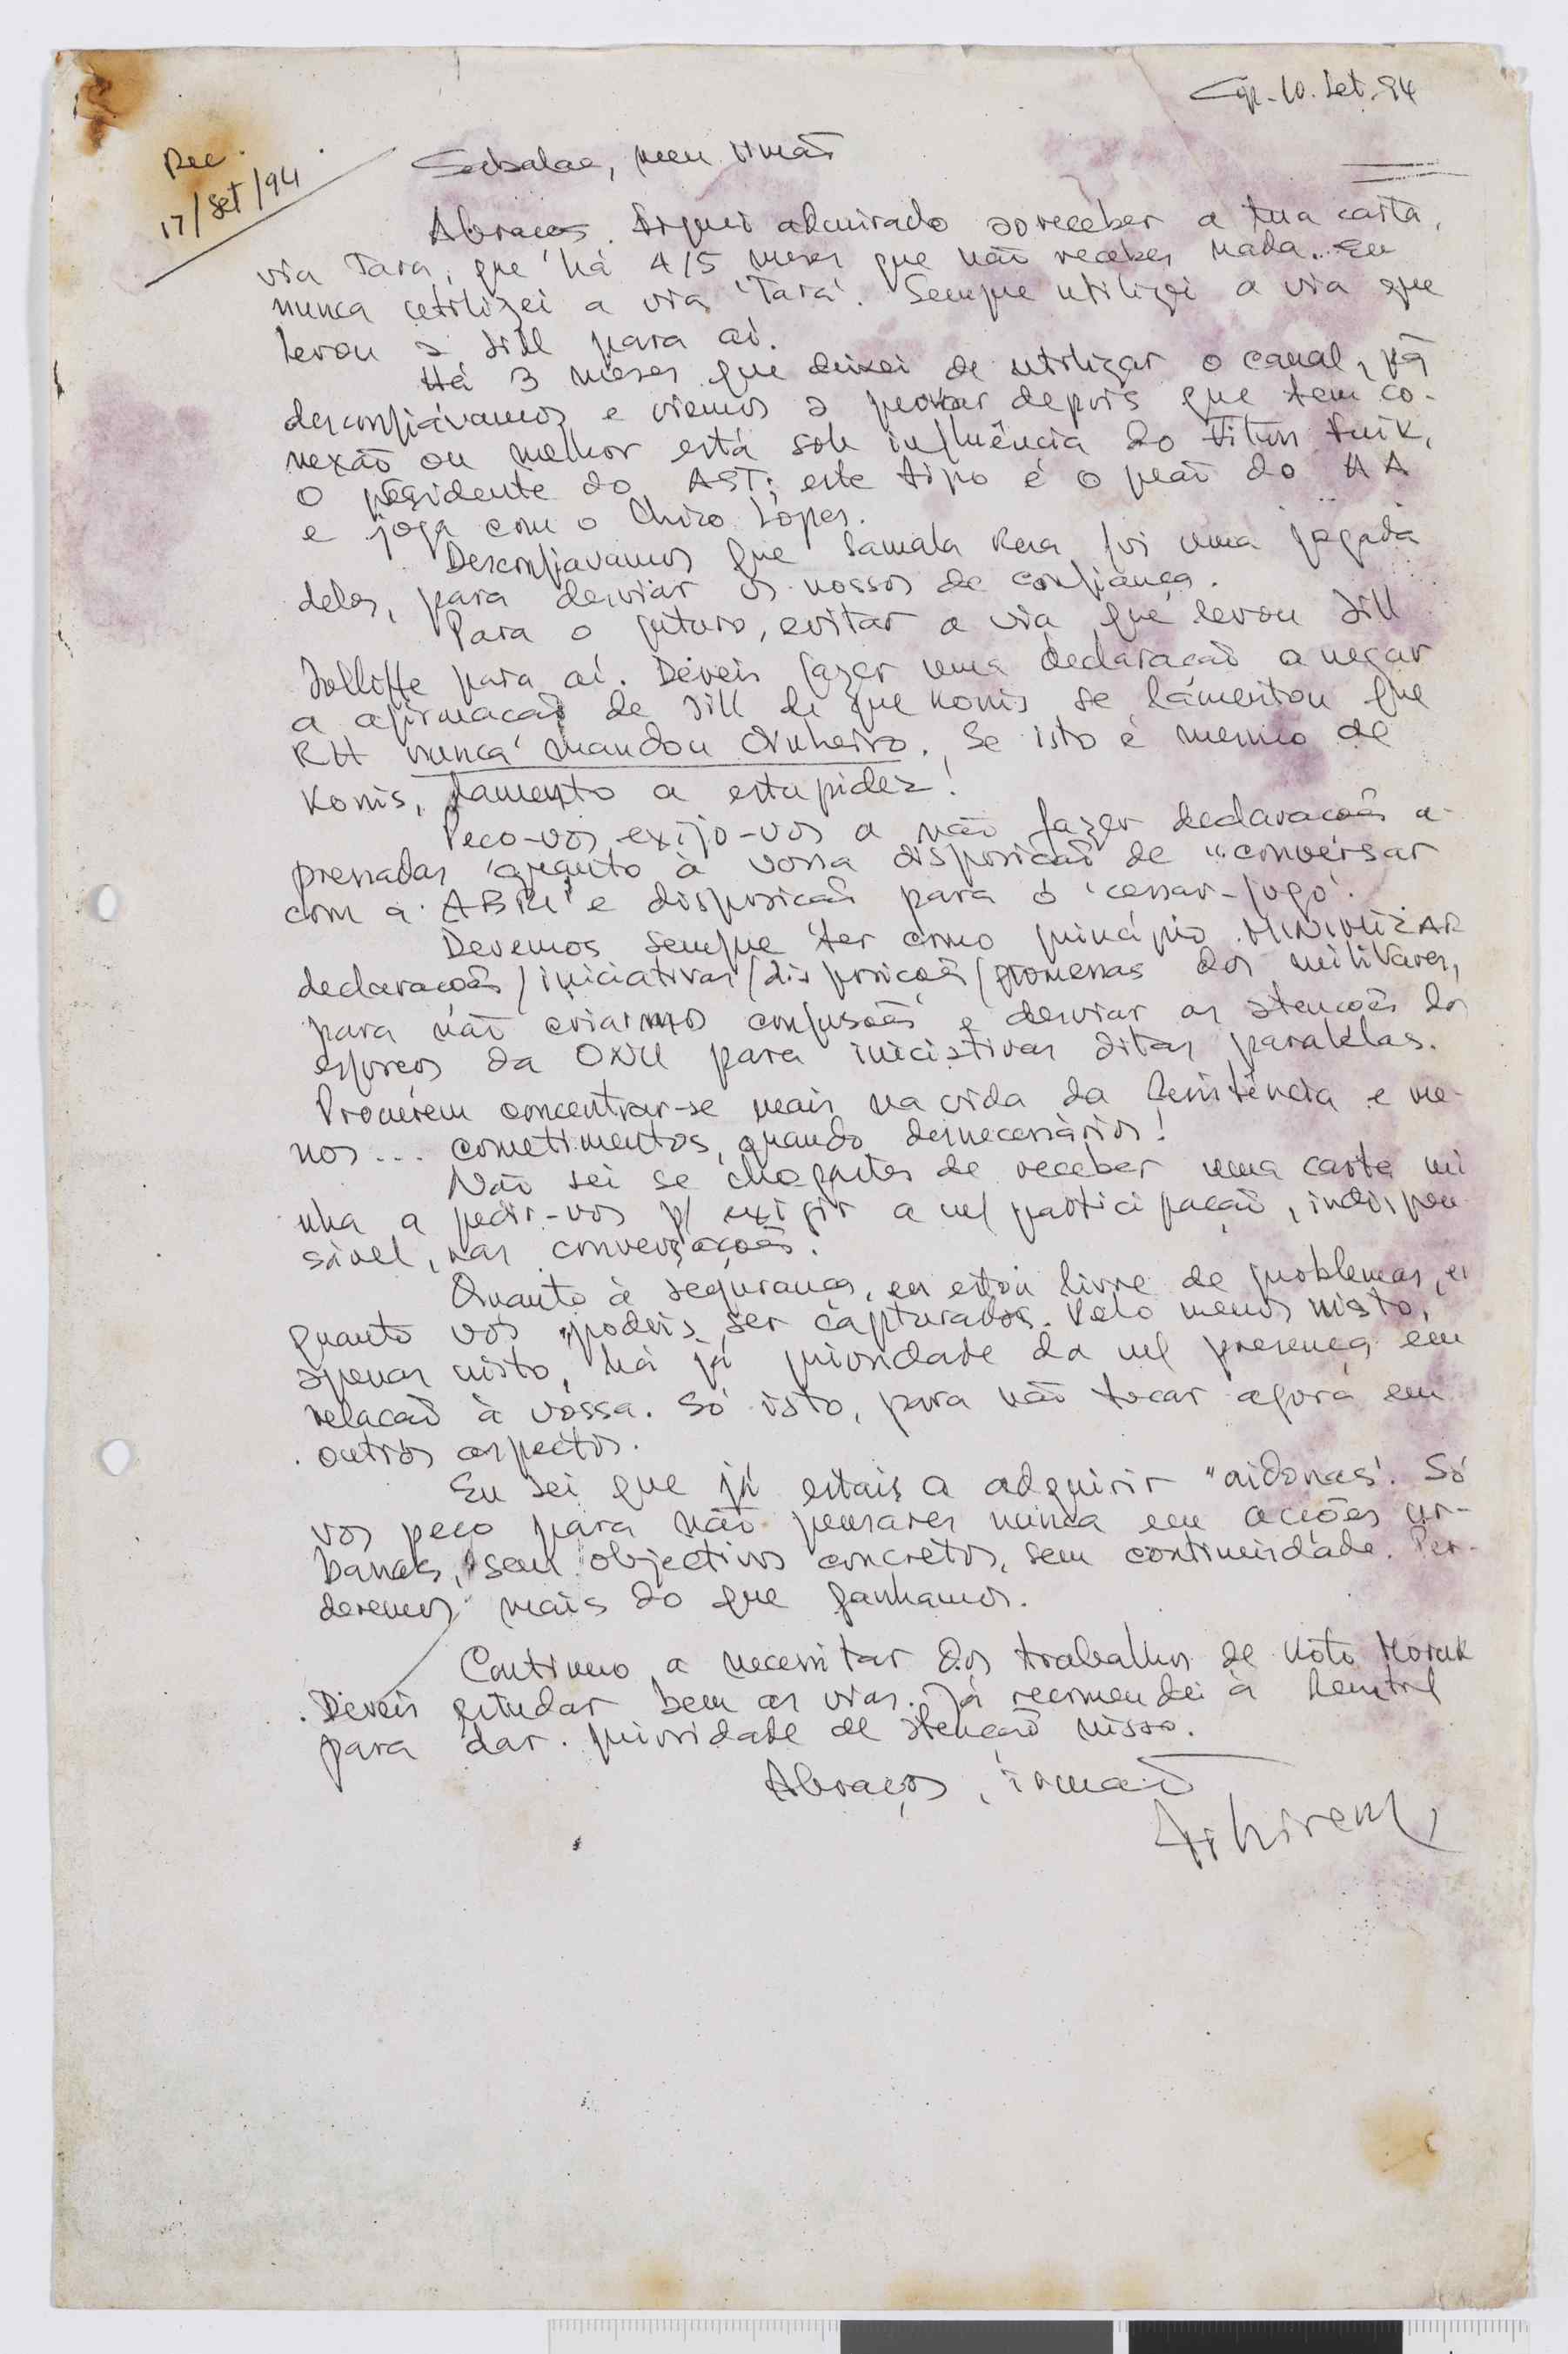 Cip. 10. Set. 94
Rec.
17/Set/94
Sabalae, meu irmão
Abraços. Fiquei admirado ao receber a tua carta,
via Tara, que há 4/5 meses que não recebes nada. Eu
nunca utilizei a via 'Tara'. Sempre utilizei a via que
levou a Jill para aí.
Há 3 meses que deixei de utilizar o canal, já
desconfiávamos e viemos a provar depois que tem co-
nexão ou melhor está sob influência do
o presidente do AST; este tipo é o peão do AA
e joga com o Chico Lopes.
Desconfiavamos que Samala Rua foi uma jogada
deles, para desviar os nossos de confiança.
Para o futuro, evitar a via que levou Jill
Jolliffe para aí. Deveis fazer uma declaração a negar
a afirmação de Jill de que Konis se lamentou que
RH nunca mandou dinheiro. Se isto é mesmo de
Konis, lamento a estupidez!
Peço-vos, exijo-vos a não fazer declarações a-
pressadas quanto à vossa disposição de "conversar
com a ABRI' e disposição para o 'cessar-fogo'.
Devemos sempre ter como princípio MINIMIZAR
declarações/iniciativas/disposições/promessas dos militares,
para não criarmos confusões e desviar as atenções dos
esforços da ONU para iniciativas ditas paralelas.
Procurem concentrar-se mais na vida da Resistência e me-
nos... cometimentos, quando desnecessários!
Não sei se chegastes de receber uma carta mi
nha a pedir-vos p/ exigir a m/ participação, indispen-
sável, nas conversações.
Quanto à segurança, eu estou livre de problemas, en
quanto vós podeis ser capturados. Pelo menos nisto,
apenas nisto, há já prioridade da m/ presença em
relação à vossa. Só isto, para não tocar agora em
outros aspectos.
Eu sei que já estais a adquirir "aidonas'. Só
vos peço para não pensares nunca em acções ur-
banas, sem objectivos concretos, sem continuidade. Per-
deremos mais do que ganhamos.
Continuo a necessitar dos trabalhos de Koto Moruk
Deveis estudar bem as vias. Já recomendei à Renetil
para dar prioridade de atenção nisso.
Abraços, irmão